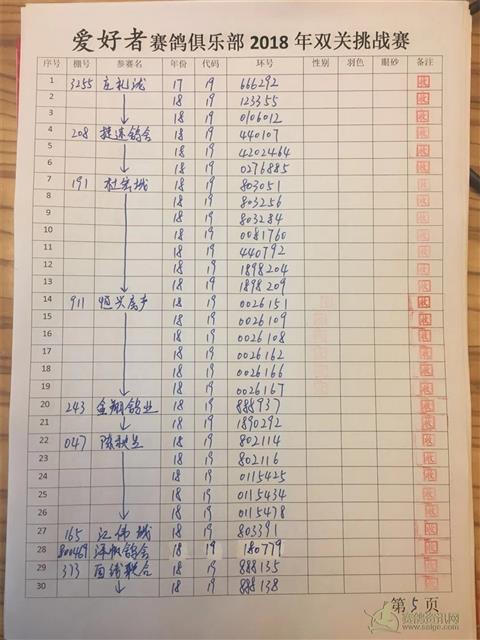 爱好者赛鸽俱乐部2018年双关挑战赛
序号 棚号 参赛名 年份 代码 环号 性别 羽色 眼砂 备注
1 3255 庄礼溅 17 19 666292
2 18 19 123355
3 18 19 0106012
4 208 捷速鸽舍 18 19 440107
5 18 19 4202464
6 18 19 0276885
7 191 18 19 803051
8 18 19 803256
9 18 19 803284
10 18 19 0081760
11 18 19 440792
12 18 19 1898204
13 18 19 1898209
14 911 恒兴房产 18 19 0026151
15 18 19 0026109
16 18 19 0026108
17 18 19 0026162
18 18 19 0026166
19 18 19 0026167
20 243 金翔鸽业 18 19 888937
21 18 19 1890292
22 047 18 19 802114
23 18 19 802116
24 18 19 0115425
25 18 19 0115434
26 18 19 0115478
27 165 江伟城 18 19 803391
28 800469 泽帆鸽舍 18 19 180779
29 373 西线联合 18 19 888135
30 18 19 888138
第5页
赛鸽资讯网
www.saige.com